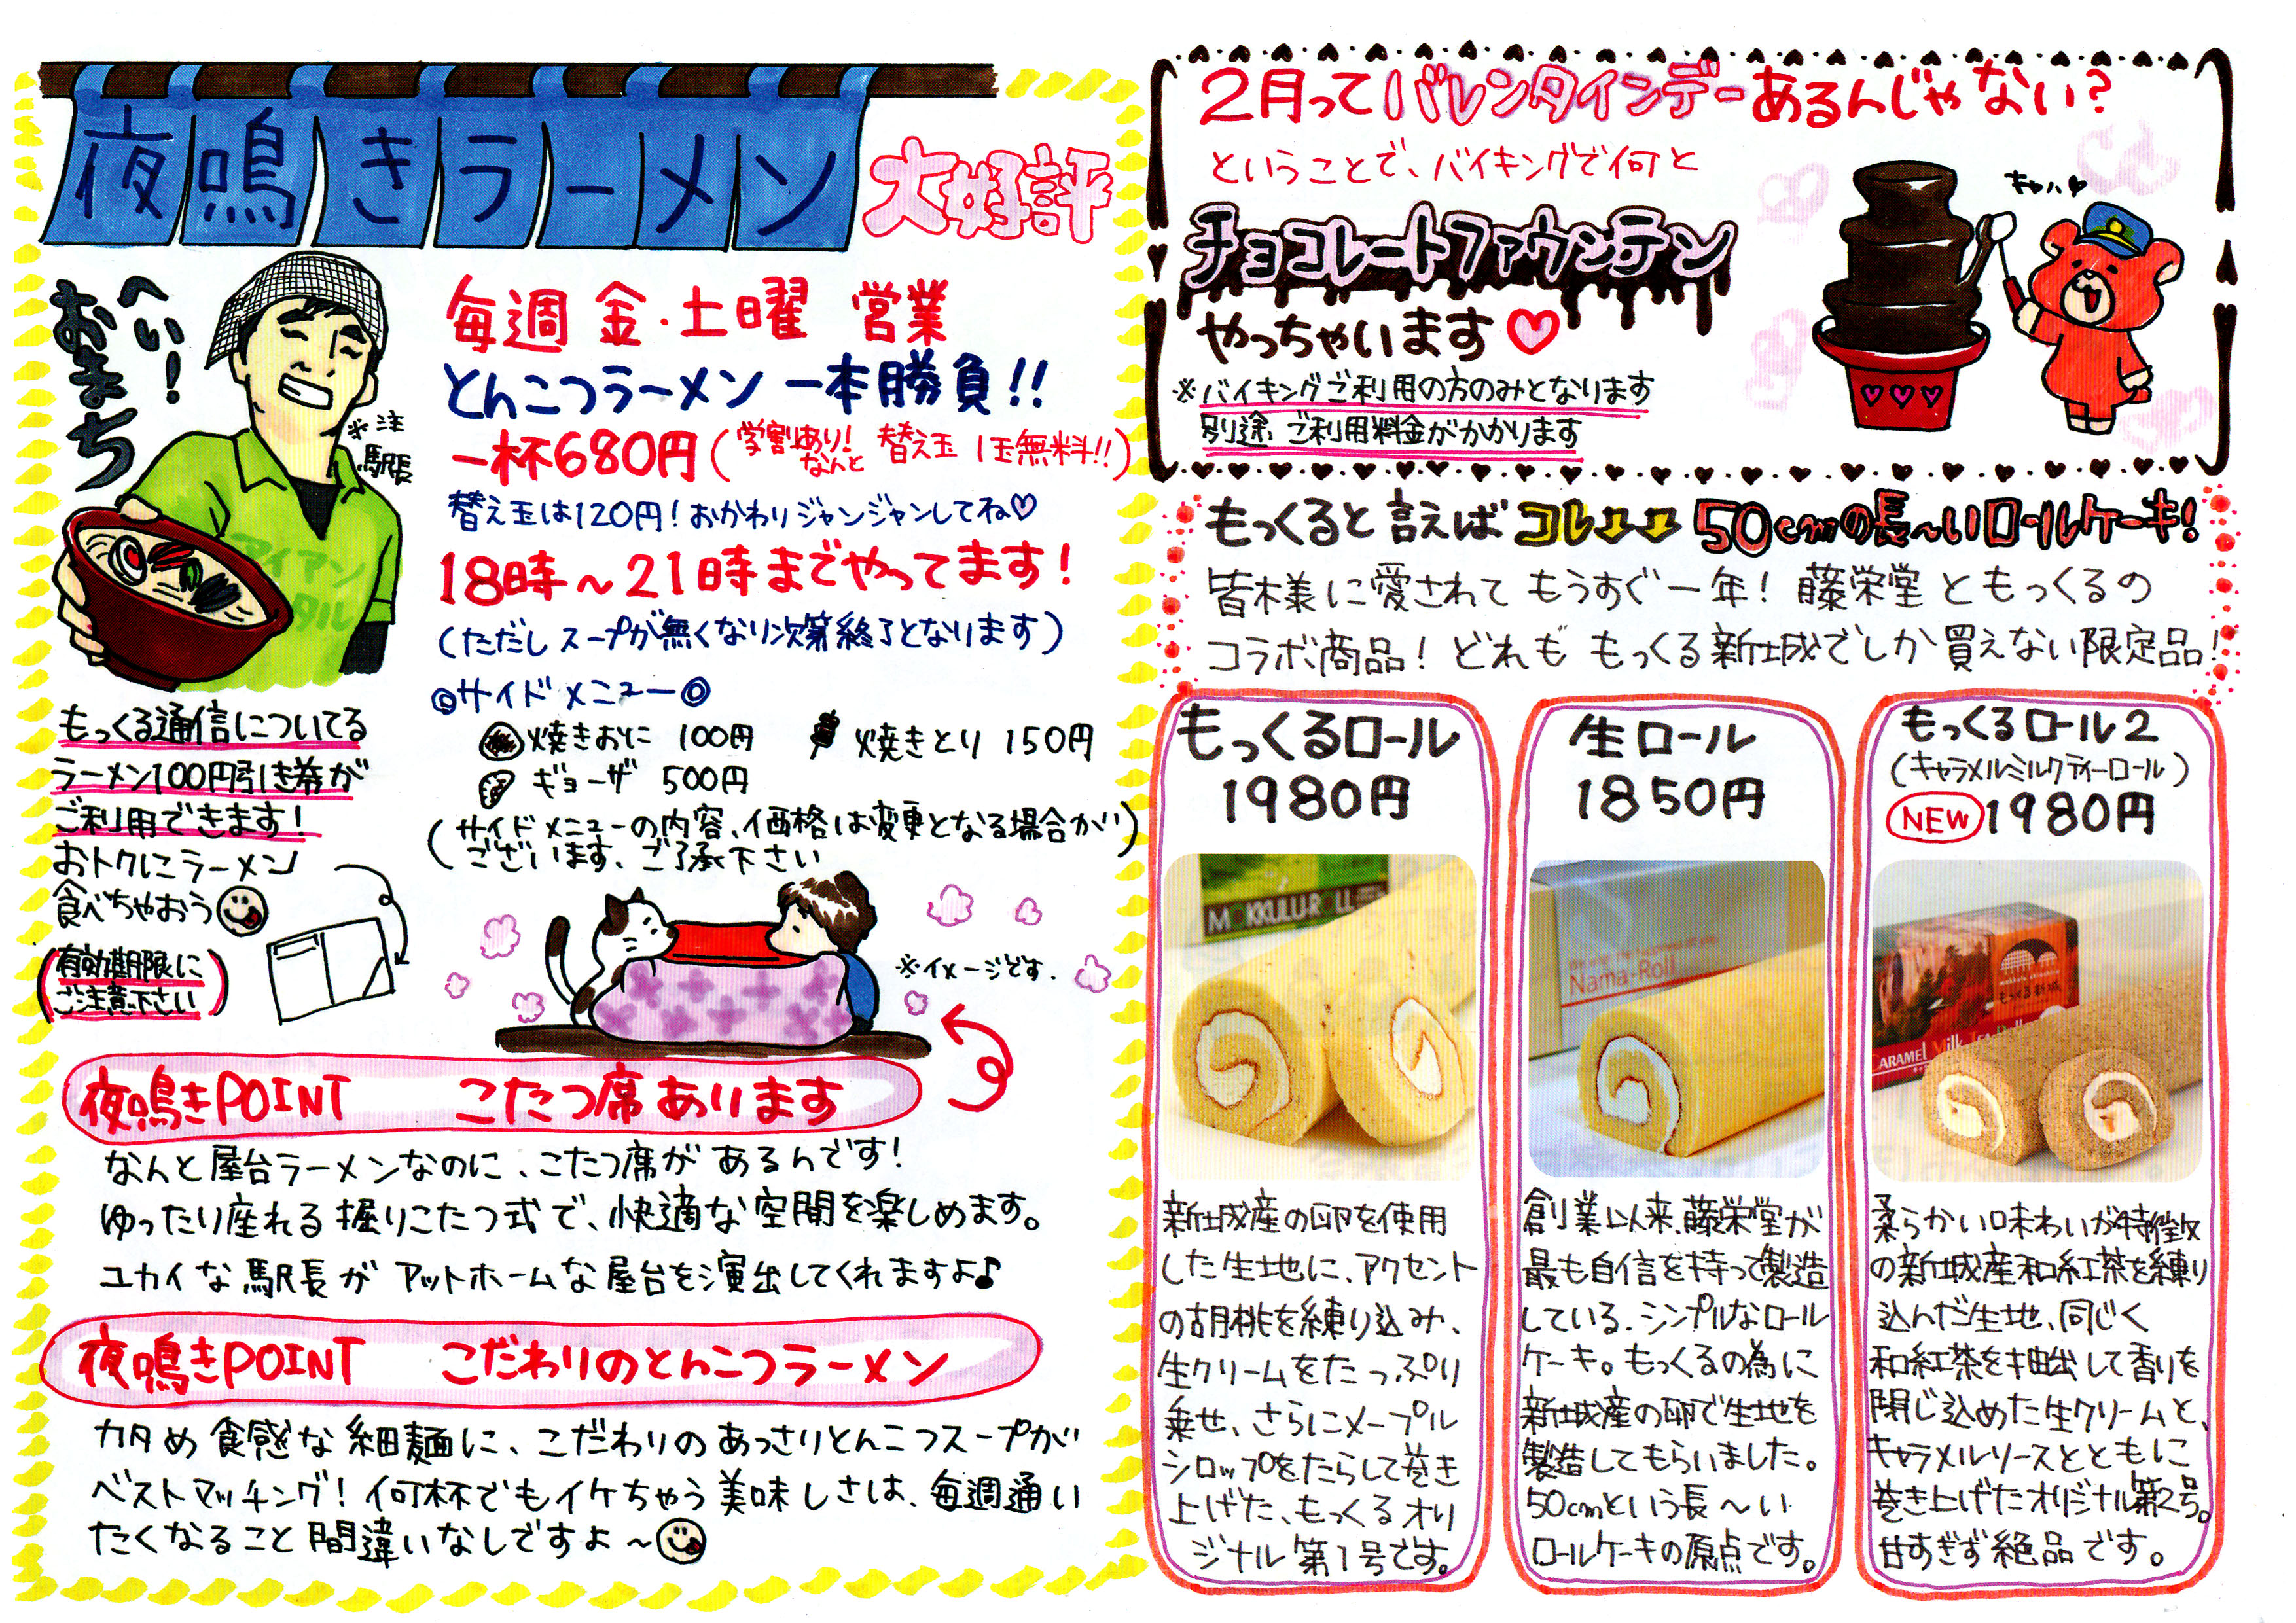 夜鳴きラーメン
大好評
へい!
おまち
※注
駅長
アイアン
タル
毎週 金・土曜 営業
とんこつラーメン 一本勝負!!
一杯680円(学割あり! なんと 替え玉 1玉無料!!)
替え玉は120円!おかわりジャンジャンしてね♡
18時~21時までやってます!
(ただし スープが無くなり次第終了となります)
◎サイドメニュー◎
焼きおに 100円
焼きとり 150円
ギョーザ 500円
(サイドメニューの内容、価格は変更となる場合が
ございます、ご了承下さい)
もっくる通信についてる
ラーメン100円引き券が
ご利用できます!
おトクにラーメン
食べちゃおう
(有効期限に
ご注意下さい)
※イメージです.
夜鳴きPOINT こたつ席あります
なんと屋台ラーメンなのに、こたつ席が あるんです!
ゆったり座れる 掘りこたつ式で、快適な空間を楽しめます。
ユカイな駅長が アットホームな屋台を演出してくれますよ♪
夜鳴きPOINT こだわりのとんこつラーメン
カタめ食感な細麺に、こだわりのあっさりとんこつスープが
ベストマッチング!何杯でもイケちゃう美味しさは、毎週通い
たくなること間違いなしですよ~
2月ってバレンタインデーあるんじゃない?
ということで、バイキングで何と
チョコレートファウンテン
やっちゃいます♡
キャハ♥
※バイキングご利用の方のみとなります
別途、ご利用料金がかかります
もっくると言えばコレ↓↓50cmの長~いロールケーキ!
皆様に愛されて もうすぐ一年! 藤栄堂ともっくるの
コラボ商品! どれも もっくる新城でしか買えない限定品!
もっくるロール
1980円
MOKKULU ROLL
新城産の卵を使用
した生地に、アクセント
の胡桃を練り込み、
生クリームをたっぷり
乗せ、さらにメープル
シロップをたらして巻き
上げた、もっくるオリ
ジナル第1号です。
生ロール
1850円
Nama-Roll
創業以来、藤栄堂が
最も自信を持って製造
している、シンプルなロール
ケーキ。もっくるの為に
新城産の卵で生地を
製造してもらいました。
50cmという長~い
ロールケーキの原点です。
もっくるロール2
(キャラメルミルクティーロール)
NEW 1980円
もっくる新城
CARAMEL Milk Tea Roll
柔らかい味わいが特徴
の新城産和紅茶を練り
込んだ生地、同じく
和紅茶を抽出して香りを
閉じ込めた生クリームと、
キャラメルソースとともに
巻き上げたオリジナル第2号。
甘すぎず絶品です。